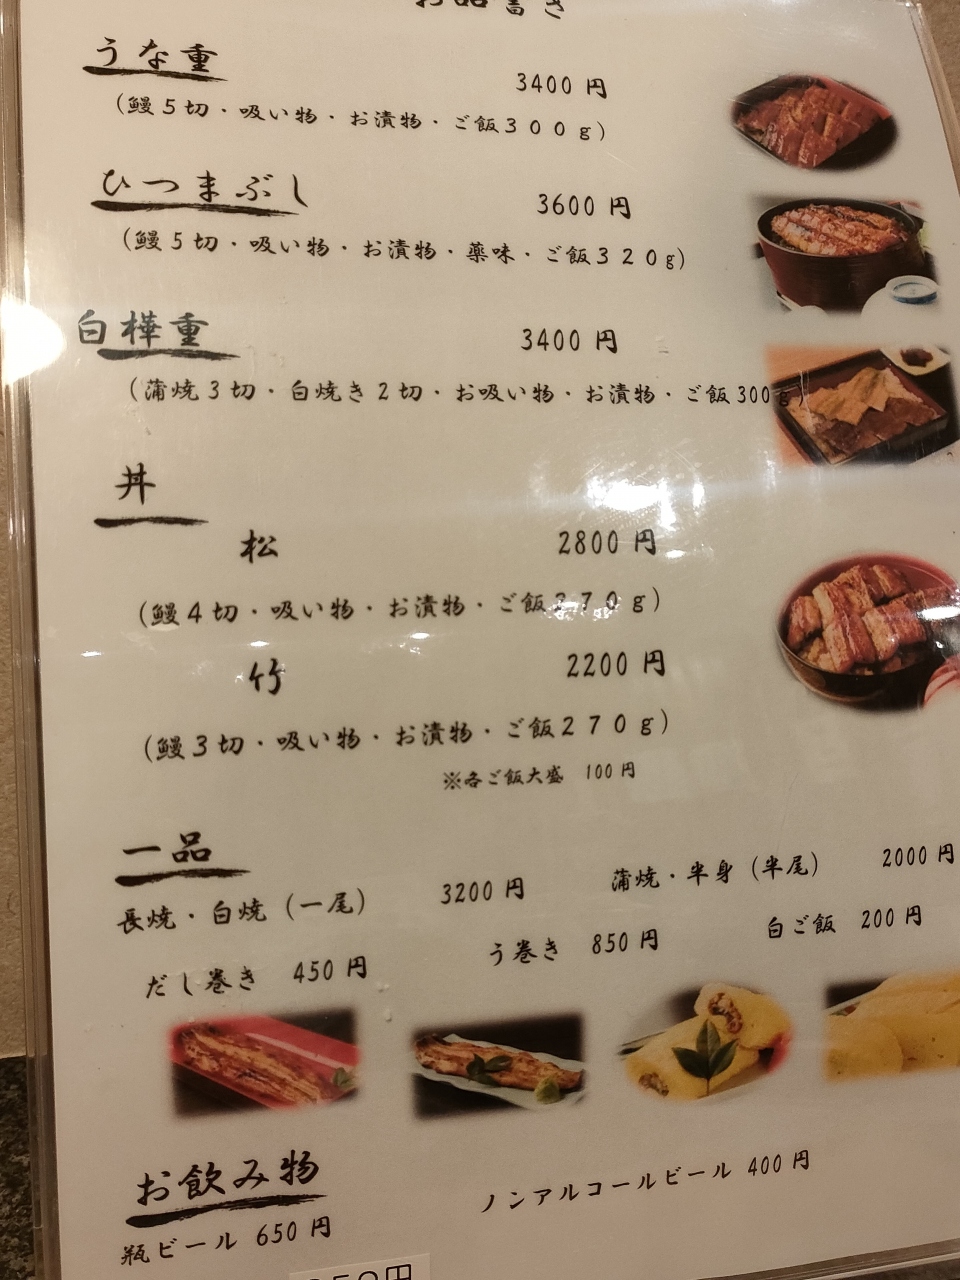 お品書き
うな重 3400円
（鰻５切・吸い物・お漬物・ご飯３００ｇ）
ひつまぶし 3600円
（鰻５切・吸い物・お漬物・薬味・ご飯３２０ｇ）
白樺重 3400円
（蒲焼３切・白焼き２切・お吸い物・お漬物・ご飯300ｇ）
丼
松 2800円
（鰻４切・吸い物・お漬物・ご飯２７０ｇ）
竹 2200円
（鰻３切・吸い物・お漬物・ご飯２７０ｇ）
※各ご飯大盛 100円
一品
長焼・白焼（一尾） 3200円 蒲焼・半身（半尾） 2000円
だし巻き 450円 う巻き 850円 白ご飯 200円
お飲み物
瓶ビール 650円 ノンアルコールビール 400円